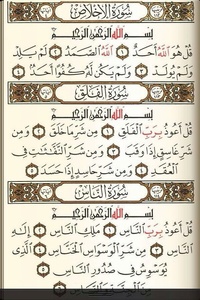 سُورَةُ الْإِخْلَاصِ
بِسْمِ اللَّهِ الرَّحْمَٰنِ الرَّحِيمِ
قُلْ هُوَ اللَّهُ أَحَدٌ ١ اللَّهُ الصَّمَدُ ٢ لَمْ يَلِدْ
وَلَمْ يُولَدْ ٣ وَلَمْ يَكُن لَّهُ كُفُوًا أَحَدٌ ٤
سُورَةُ الْفَلَقِ
بِسْمِ اللَّهِ الرَّحْمَٰنِ الرَّحِيمِ
قُلْ أَعُوذُ بِرَبِّ الْفَلَقِ ١ مِن شَرِّ مَا خَلَقَ ٢ وَمِن
شَرِّ غَاسِقٍ إِذَا وَقَبَ ٣ وَمِن شَرِّ النَّفَّٰثَٰتِ فِي
الْعُقَدِ ٤ وَمِن شَرِّ حَاسِدٍ إِذَا حَسَدَ ٥
سُورَةُ النَّاسِ
بِسْمِ اللَّهِ الرَّحْمَٰنِ الرَّحِيمِ
قُلْ أَعُوذُ بِرَبِّ النَّاسِ ١ مَلِكِ النَّاسِ ٢ إِلَٰهِ
النَّاسِ ٣ مِن شَرِّ الْوَسْوَاسِ الْخَنَّاسِ ٤ الَّذِي
يُوَسْوِسُ فِي صُدُورِ النَّاسِ ٥